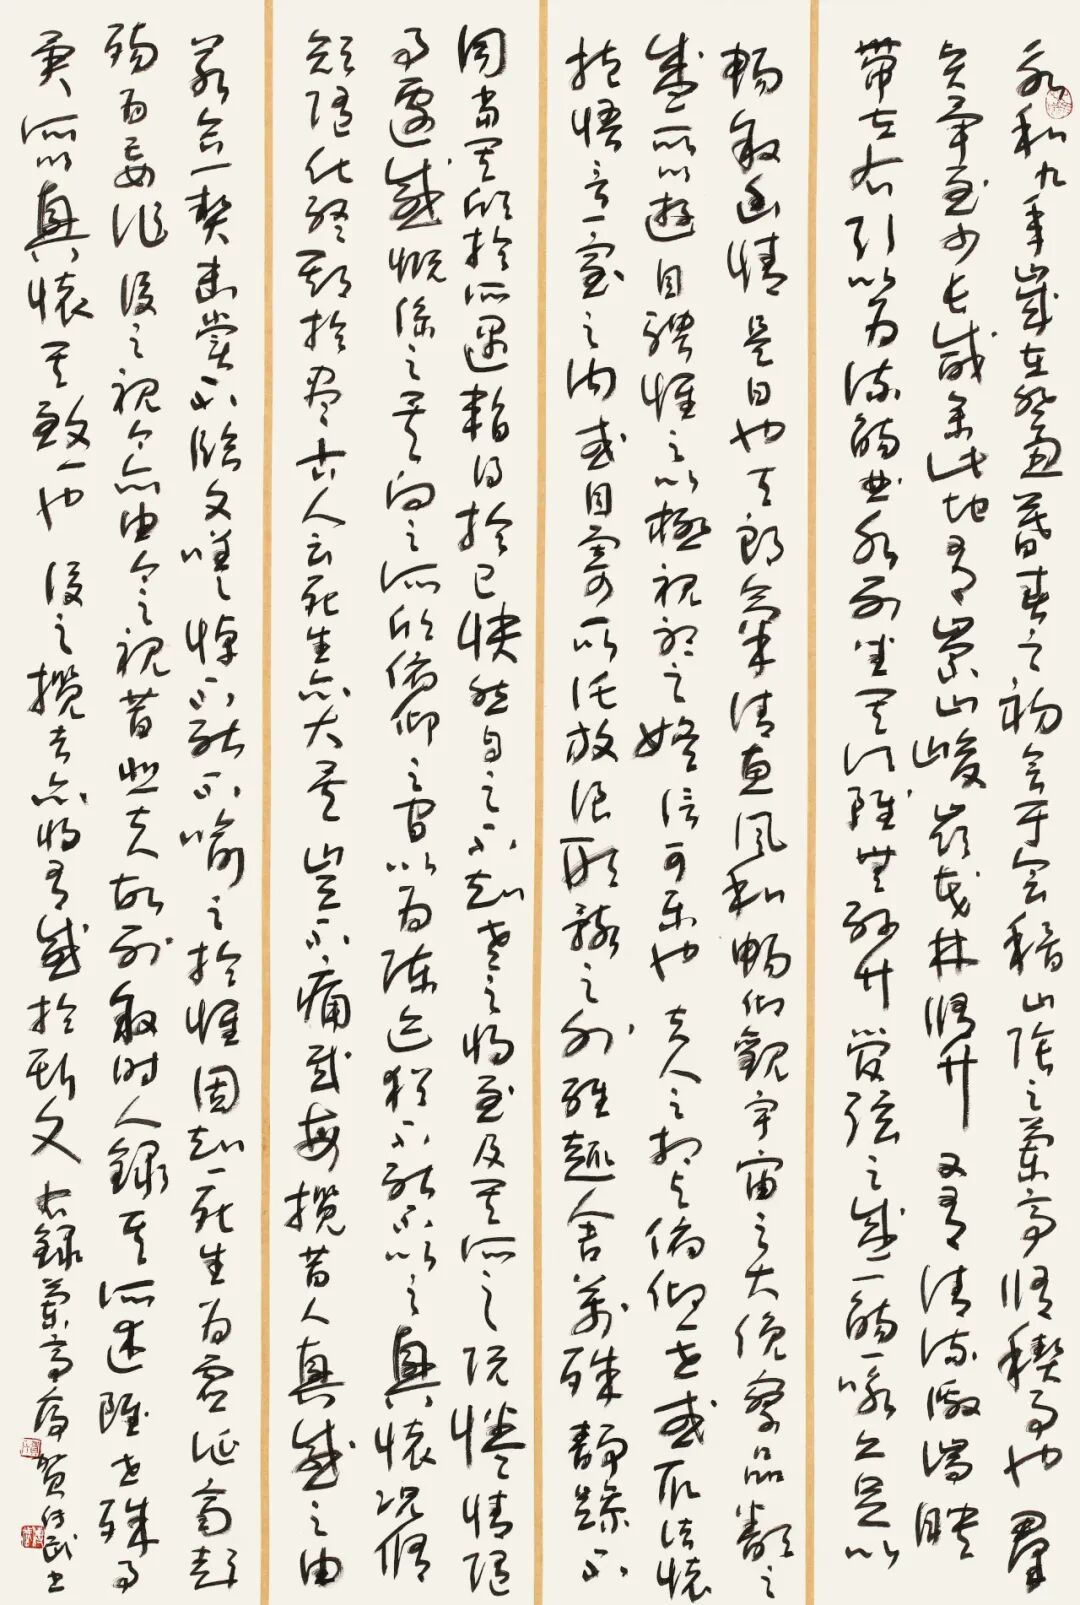 永和九年歲在癸丑暮春之初會于會稽山陰之蘭亭脩稧事也羣
賢畢至少長咸集此地有崇山峻領茂林脩竹又有清流激湍映
帶左右引以為流觴曲水列坐其次雖無絲竹管弦之盛一觴一詠亦足以
暢敘幽情是日也天朗氣清惠風和暢仰觀宇宙之大俛察品類之
盛所以遊目騁懷之以極視聽之娛信可樂也夫人之相與俯仰一世或取諸懷
抱悟言一室之內或因寄所託放浪形骸之外雖趣舍萬殊靜躁不
同當其欣於所遇暫得於己快然自足不知老之將至及其所之既惓情隨
事遷感慨係之矣向之所欣俯仰之間以為陳迹猶不能不以之興懷況脩
短隨化終期於盡古人云死生亦大矣豈不痛哉每攬昔人興感之由
若合一契未嘗不臨文嗟悼不能喻之於懷固知一死生為虛誕齊彭
殤為妄作後之視今亦由今之視昔悲夫故列敘時人錄其所述雖世殊事
異所以興懷其致一也後之攬者亦將有感於斯文右錄蘭亭序賀